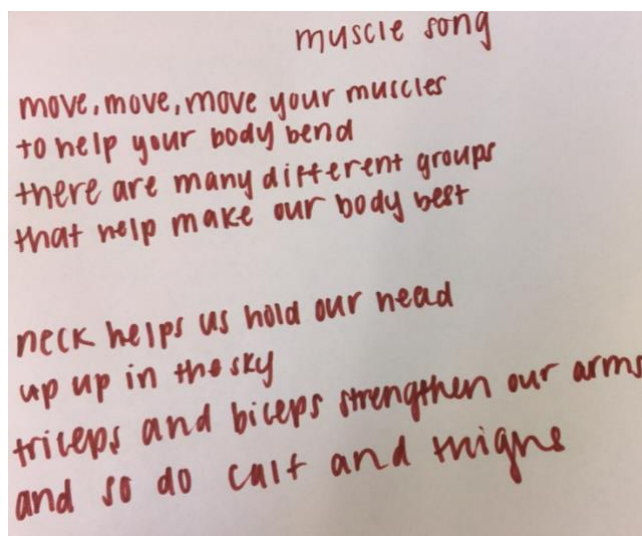 muscle song
move, move, move your muscles
to help your body bend
there are many different groups
that help make our body best
neck helps us hold our head
up up in the sky
triceps and biceps strengthen our arms
and so do calf and thighs